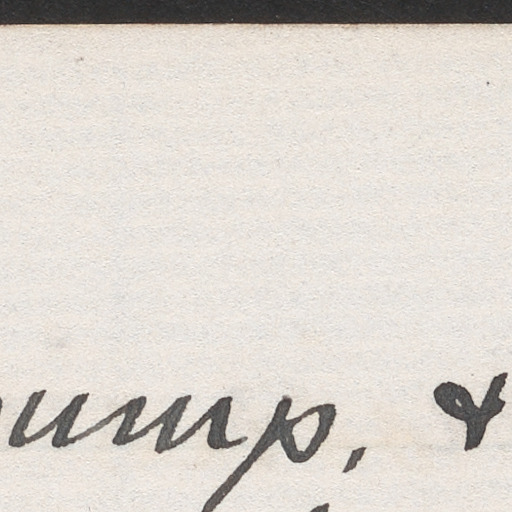 ump, &